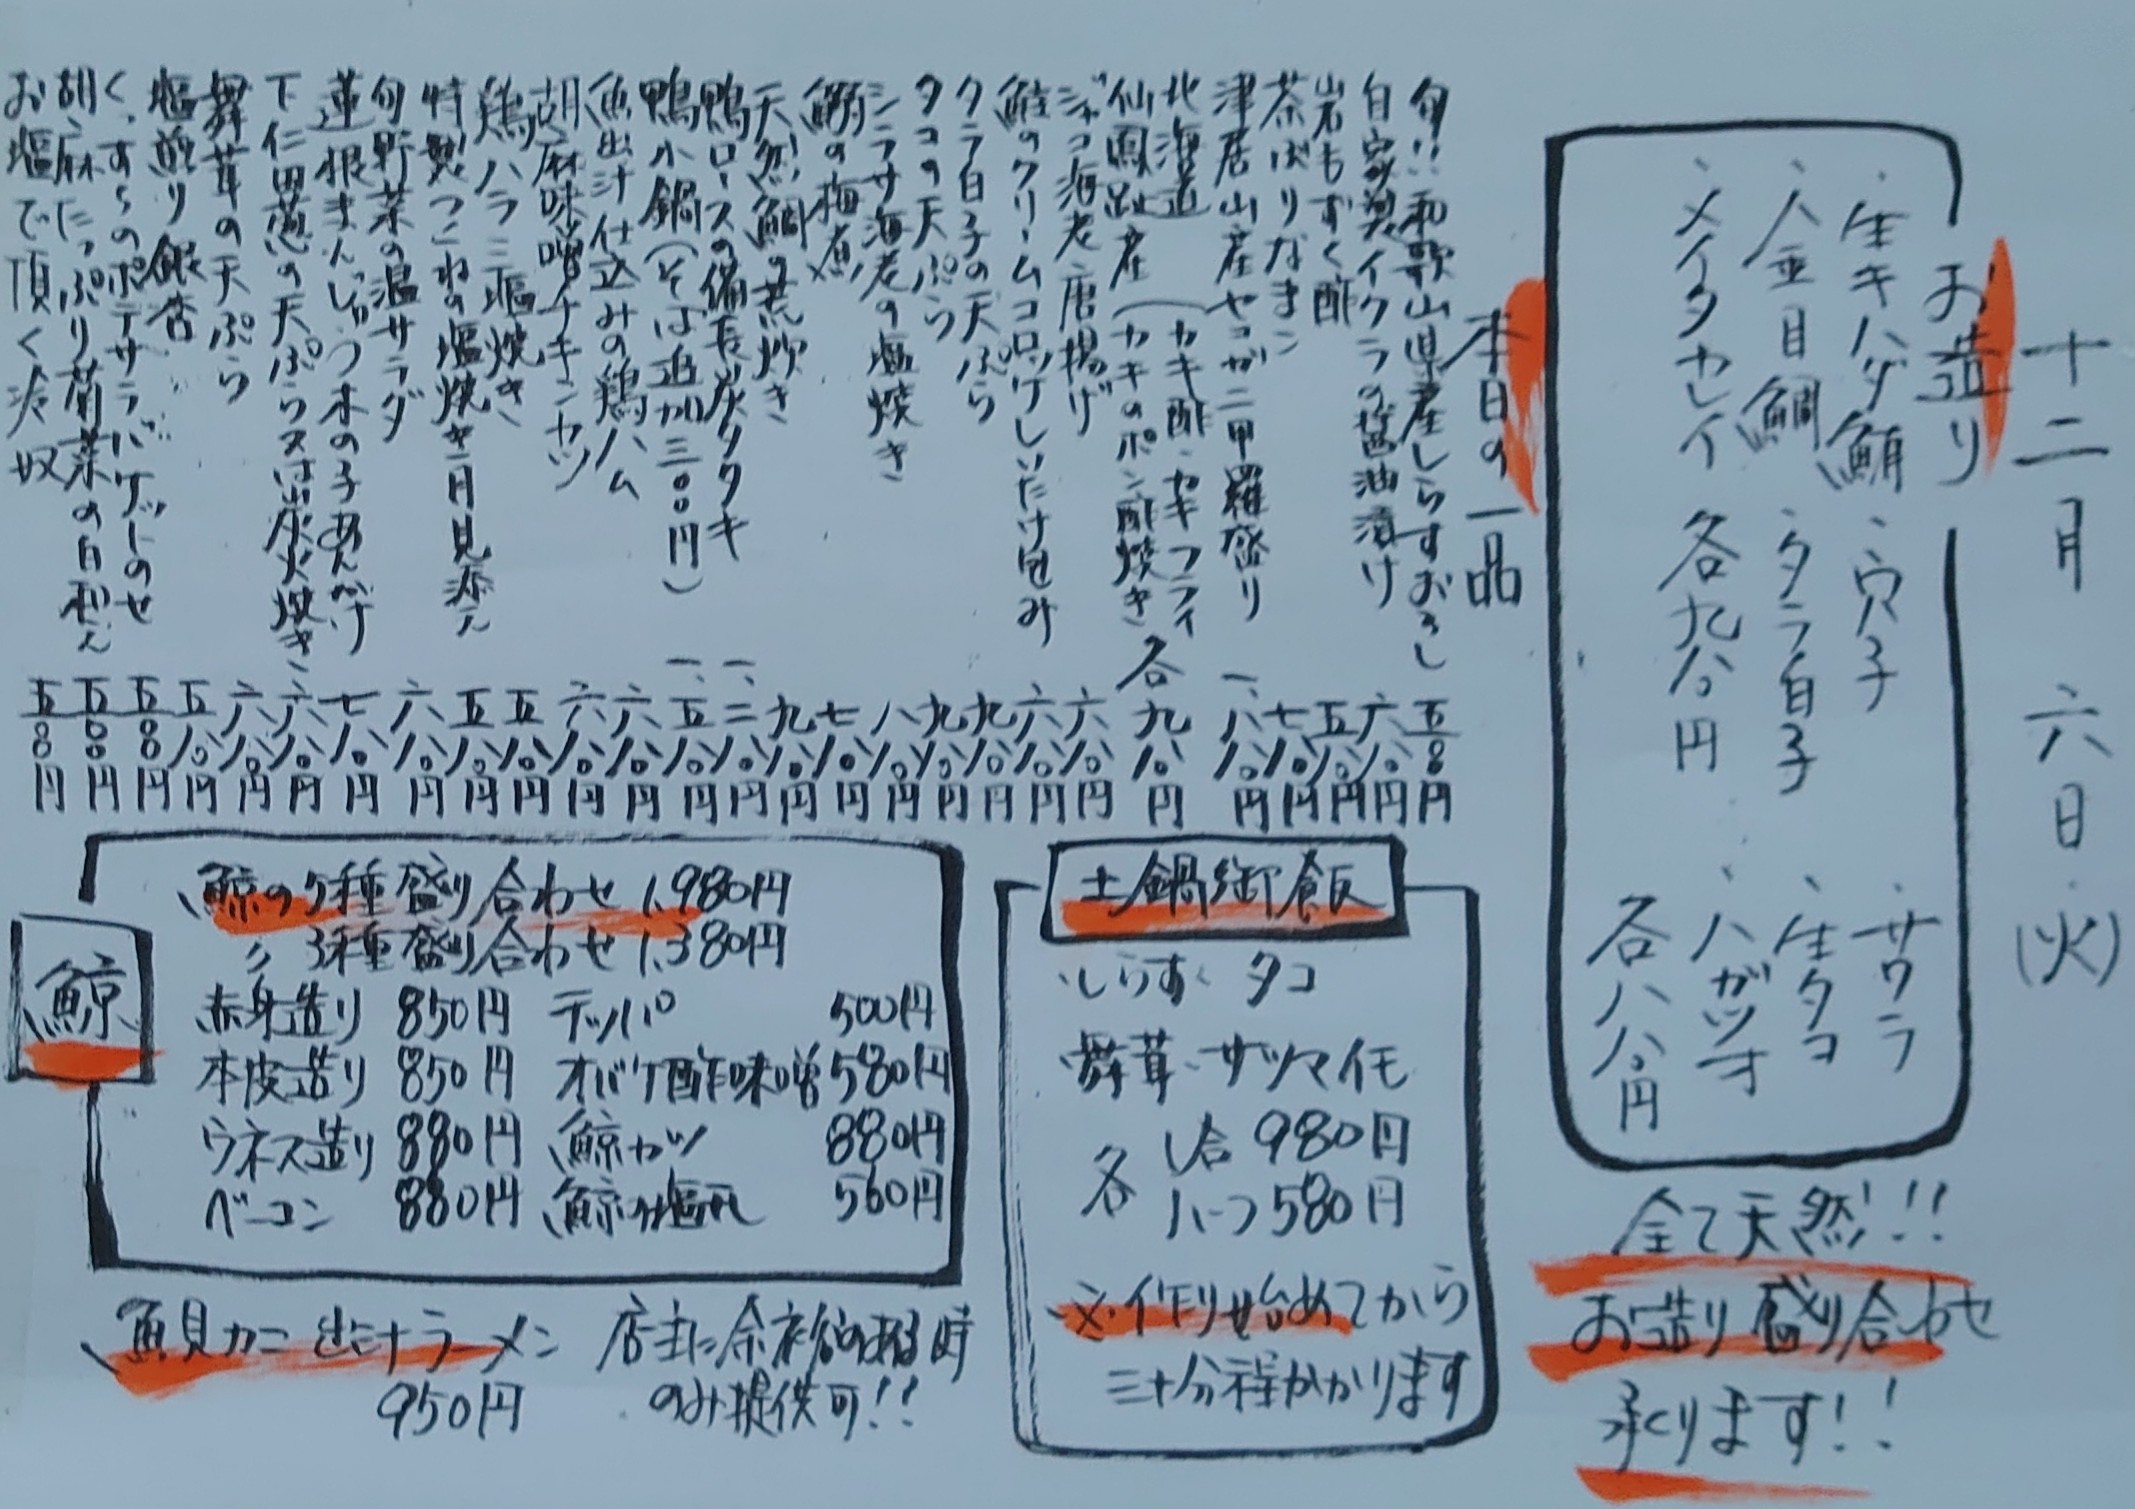 十二月 六日(火)
お造り
・生キハダ鮪 ・穴子 ・サワラ
・金目鯛 ・タラ白子 ・生タコ
・メイタカレイ 各九八〇円 ・ハガツオ
各八八〇円
全て天然!!
お造り盛り合わせ
承ります!!
本日の一品
旬!!和歌山県産しらすおろし 五八〇円
自家製イクラの醤油漬け 六八〇円
岩もずく酢 五八〇円
茶ぶりなまこ 七八〇円
津居山産セコガニ甲羅盛り 一、八八〇円
北海道 (カキ酢・カキフライ
仙鳳趾産 (カキのポン酢焼き 各九八〇円
ジャコ海老唐揚げ 六八〇円
鮭のクリームコロッケしいたけ包み 六八〇円
タラ白子の天ぷら 九八〇円
タコの天ぷら 九八〇円
シラサ海老の塩焼き 八八〇円
鰯の梅煮 七八〇円
天然鯛の荒炊き 九八〇円
鴨ロースの備長炭タタキ 一、二八〇円
鴨小鍋(そば追加三〇〇円) 一、五八〇円
魚出汁仕込みの鶏ハム 六八〇円
胡麻味噌チキンカツ 六八〇円
鶏ハラミ塩焼き 五八〇円
特製つくねの塩焼き月見添え 五八〇円
旬野菜の温サラダ 六八〇円
蓮根まんじゅう木の子あんかけ 七八〇円
下仁田葱の天ぷら又は炭火焼き 六八〇円
舞茸の天ぷら 六八〇円
塩煎り銀杏 五八〇円
くんすらのポテサラバゲットのせ 五八〇円
胡麻たっぷり菊菜の白和え 五八〇円
お塩で頂く冷奴 五八〇円
土鍋御飯
・しらす・タコ
・舞茸・サツマイモ
各 1合 980円
ハーフ580円
※作り始めてから
三十分程かかります
鯨
・鯨の5種盛り合わせ 1,980円
〃 3種盛り合わせ 1,380円
赤身造り 850円 テッパ 500円
本皮造り 850円 オバケ酢味噌 580円
ウネス造り 880円 鯨カツ 880円
ベーコン 880円 鯨の塩 560円
、魚貝カニ出汁ラーメン 店主に余裕がある時
950円 のみ提供可!!